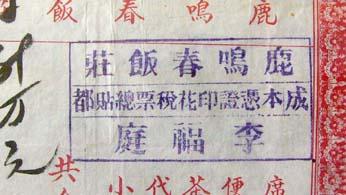 鹿鳴春飯
鹿鳴春飯莊
成本憑證印花稅票總貼都
李福庭
席便茶代小
共